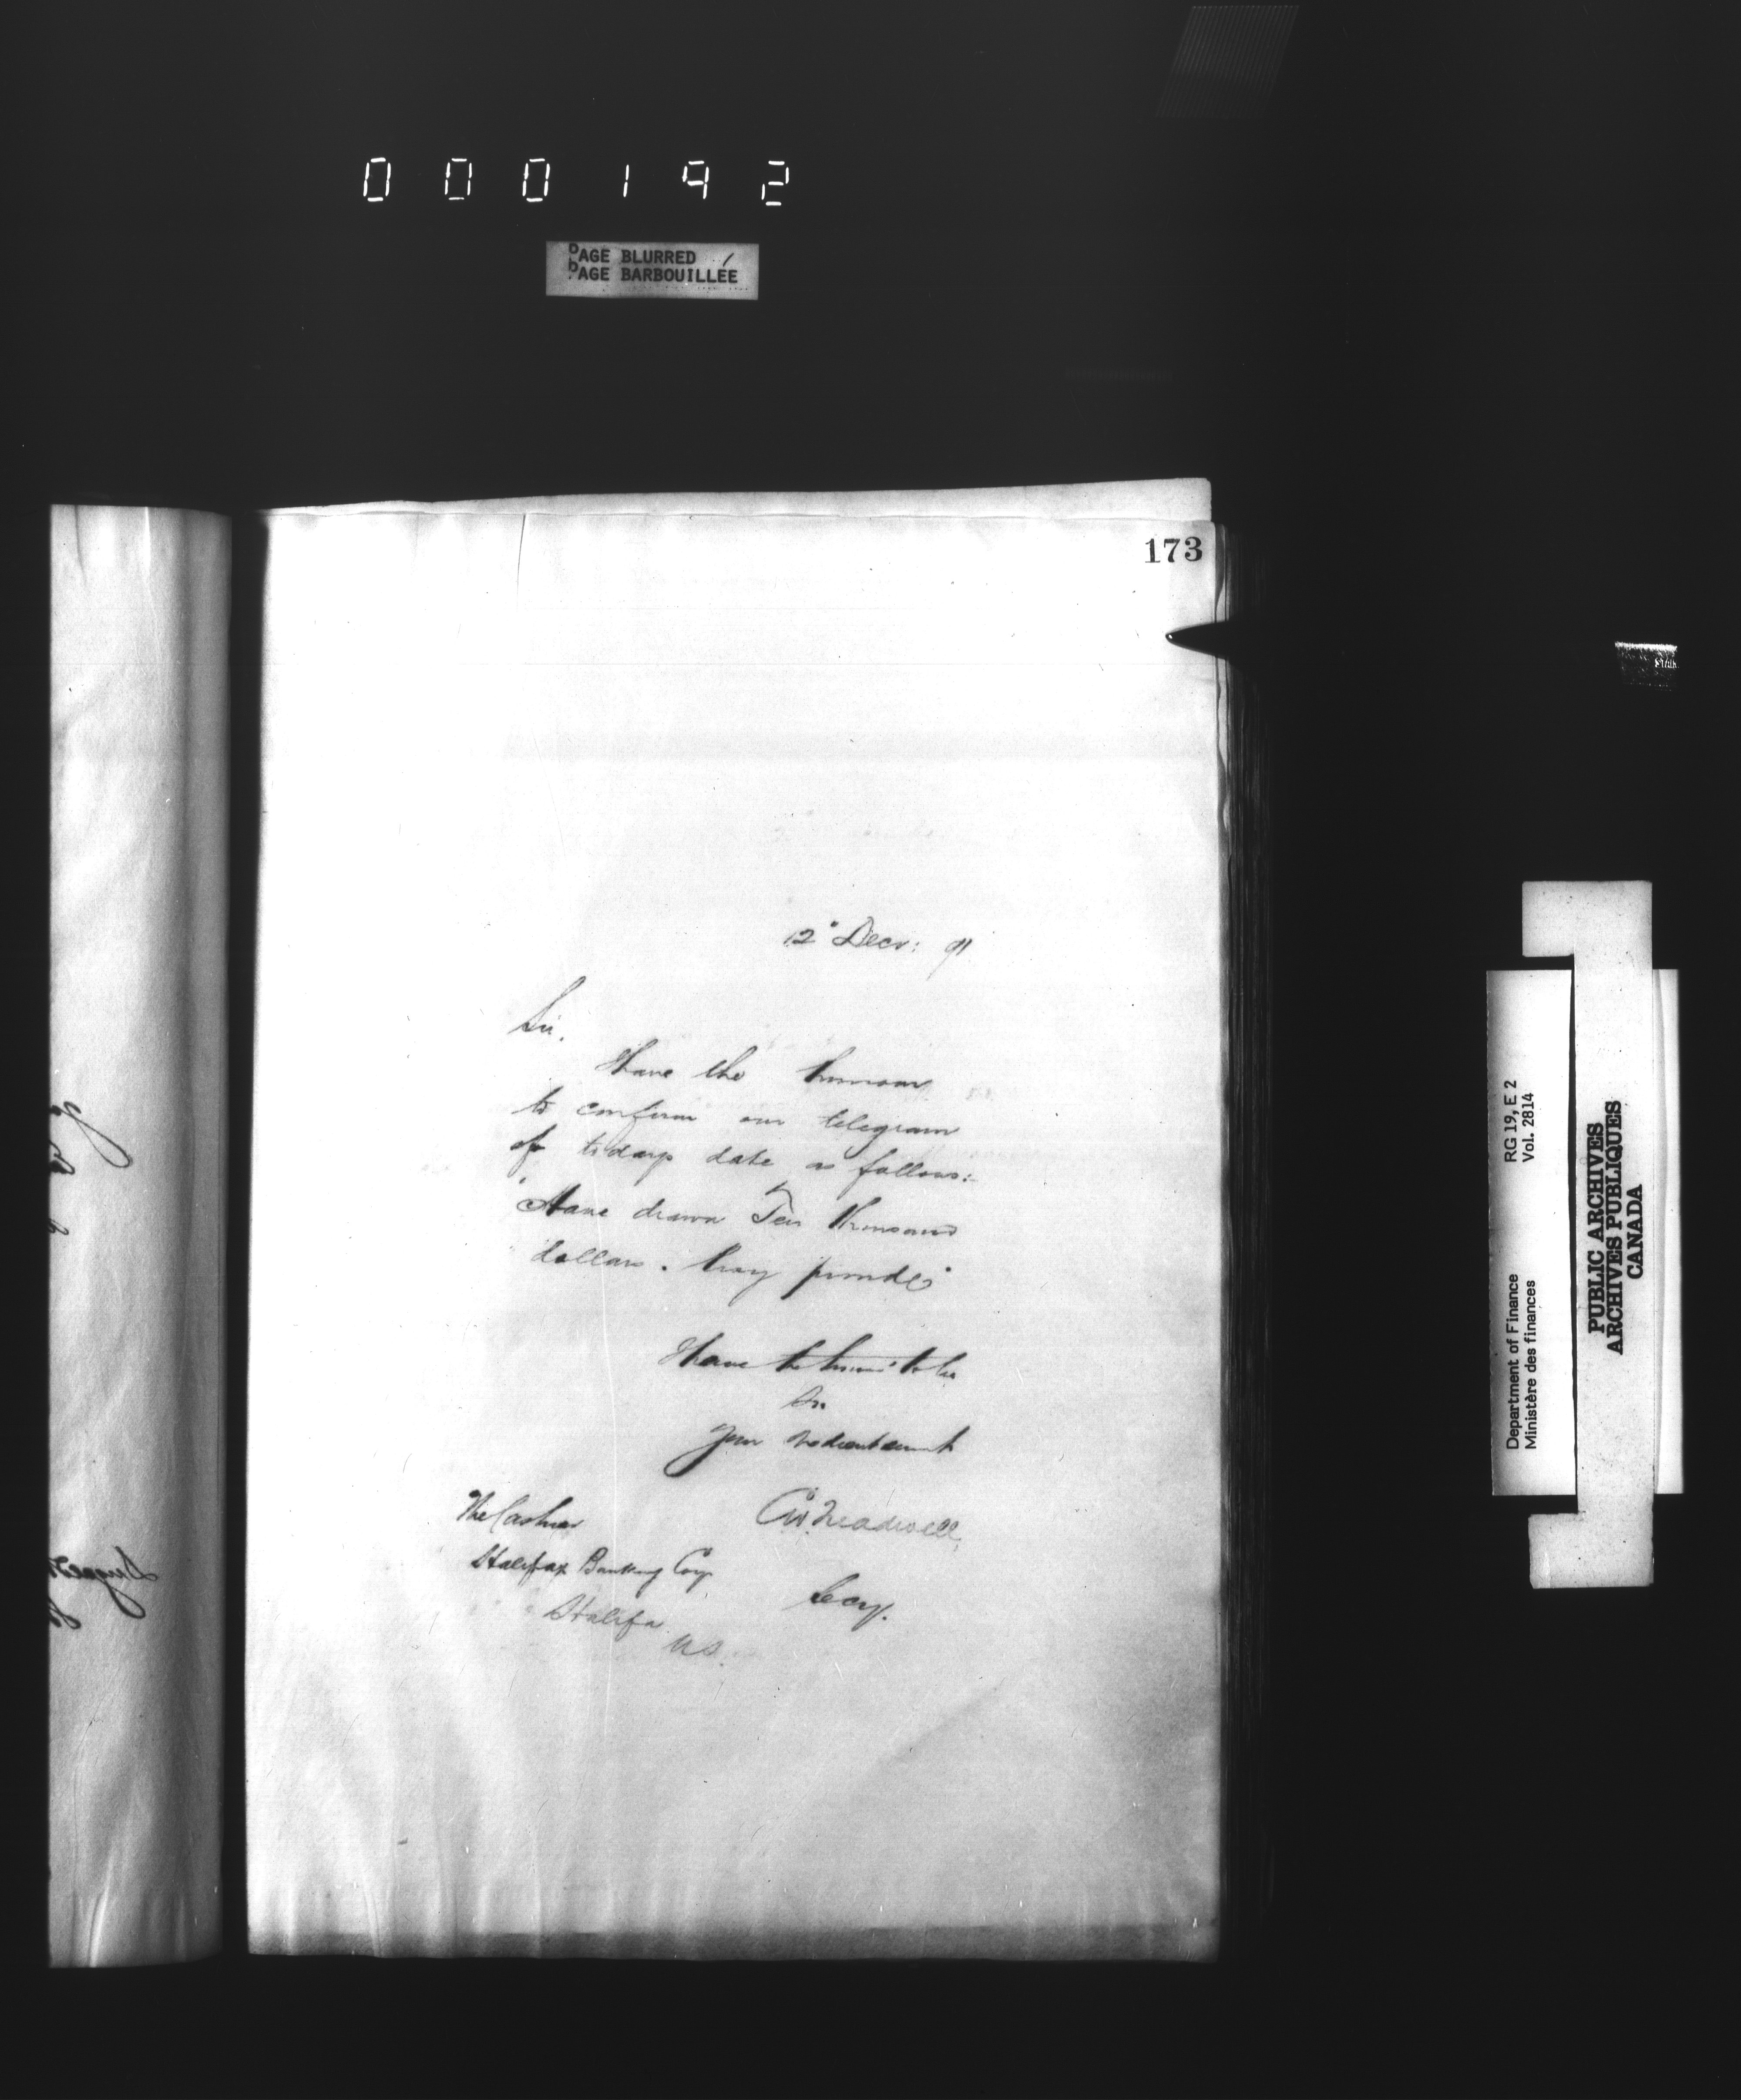 000192
PAGE BLURRED
PAGE BARBOUILLÉE
173
12" Decr: 91
Sir,
I have the honour
to confirm our telegram
of todays date as follows:-
"Have drawn Ten thousand
dollars. Pray provide"
I have the honor to be
Sir
Your obedient servant
C.W. Treadwell
Secy.
The Cashier
Halifax Banking Coy
Halifa
N.S.
Department of Finance
Ministère des finances
RG 19, E 2
Vol. 2814
PUBLIC ARCHIVES
ARCHIVES PUBLIQUES
CANADA